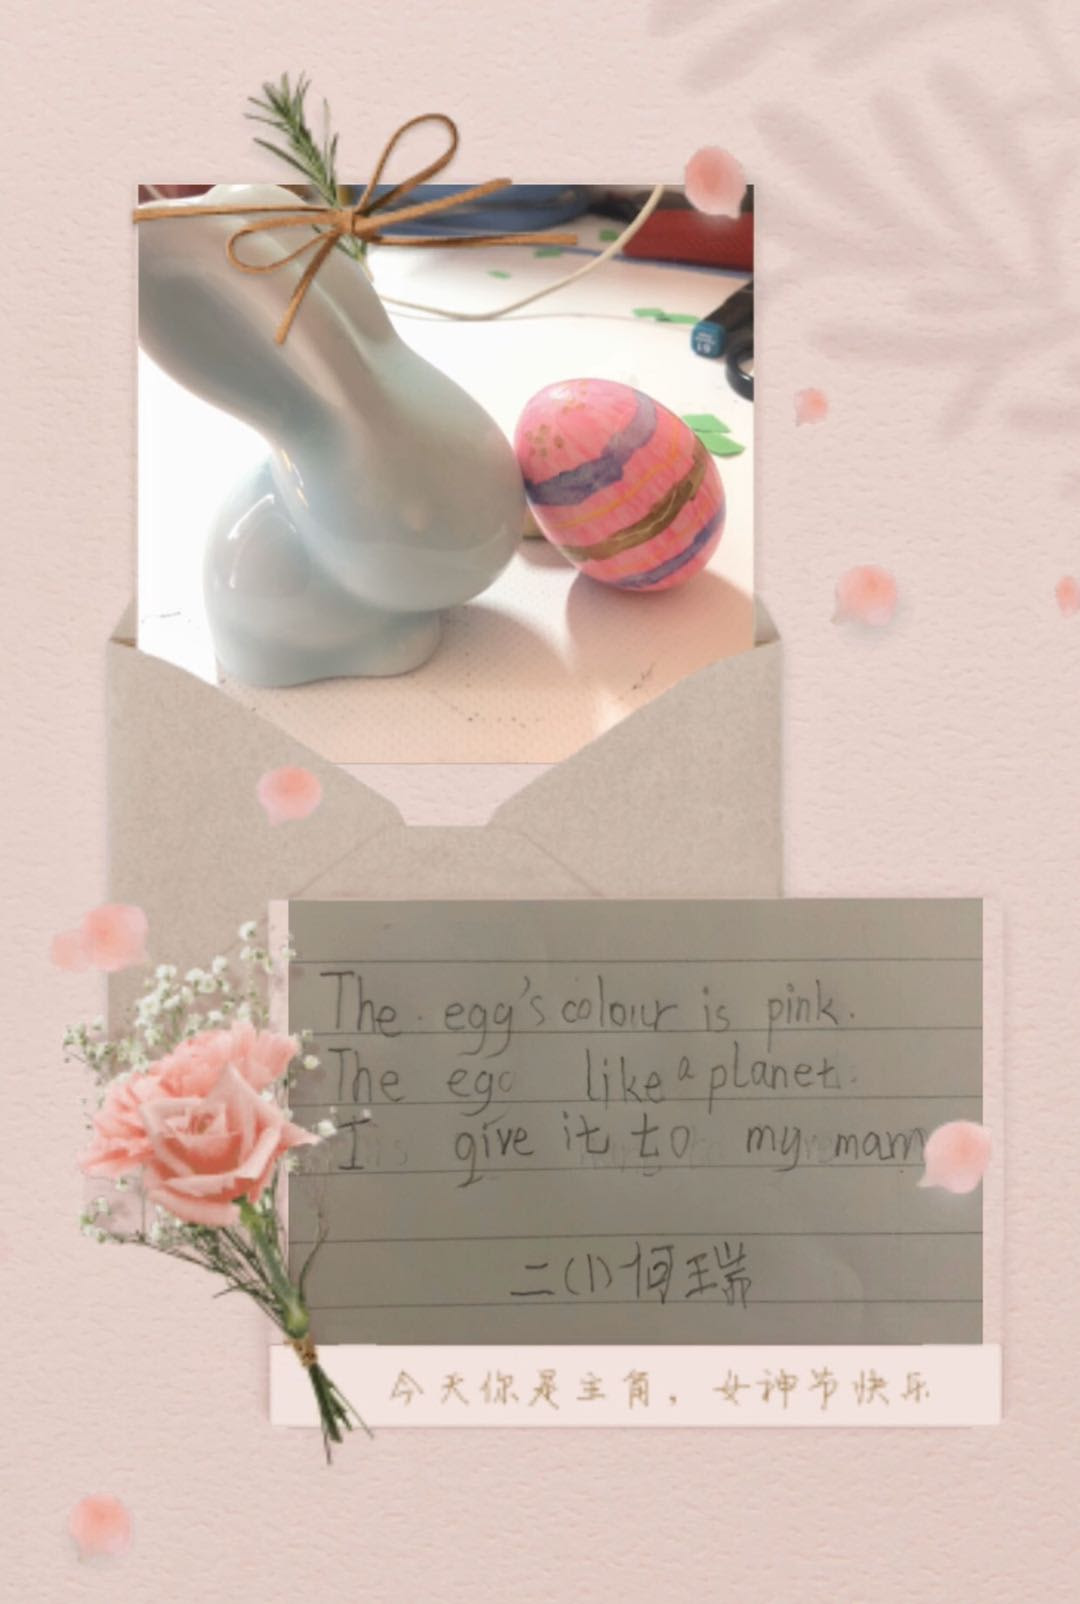 The egg's colour is pink.
The egg like a planet.
I give it to my mam
二(1)何瑞
今天你是主角，女神节快乐